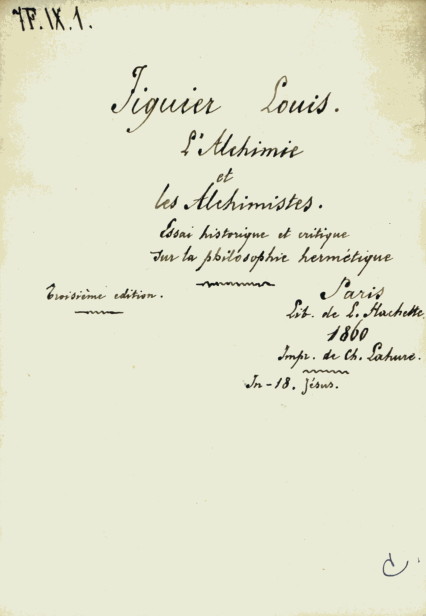 7F.IX.1.
Figuier Louis.
L'Alchimie
et
les Alchimistes.
Essai historique et critique
sur la philosophie hermétique
Troisième edition.
Paris
Lib. de L. Hachette.
1860
Impr. de Ch. Lahure.
In-18. Jésus.